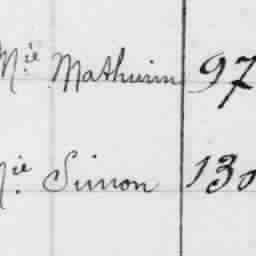 Mie Mathurin 97
Mie Simon 130